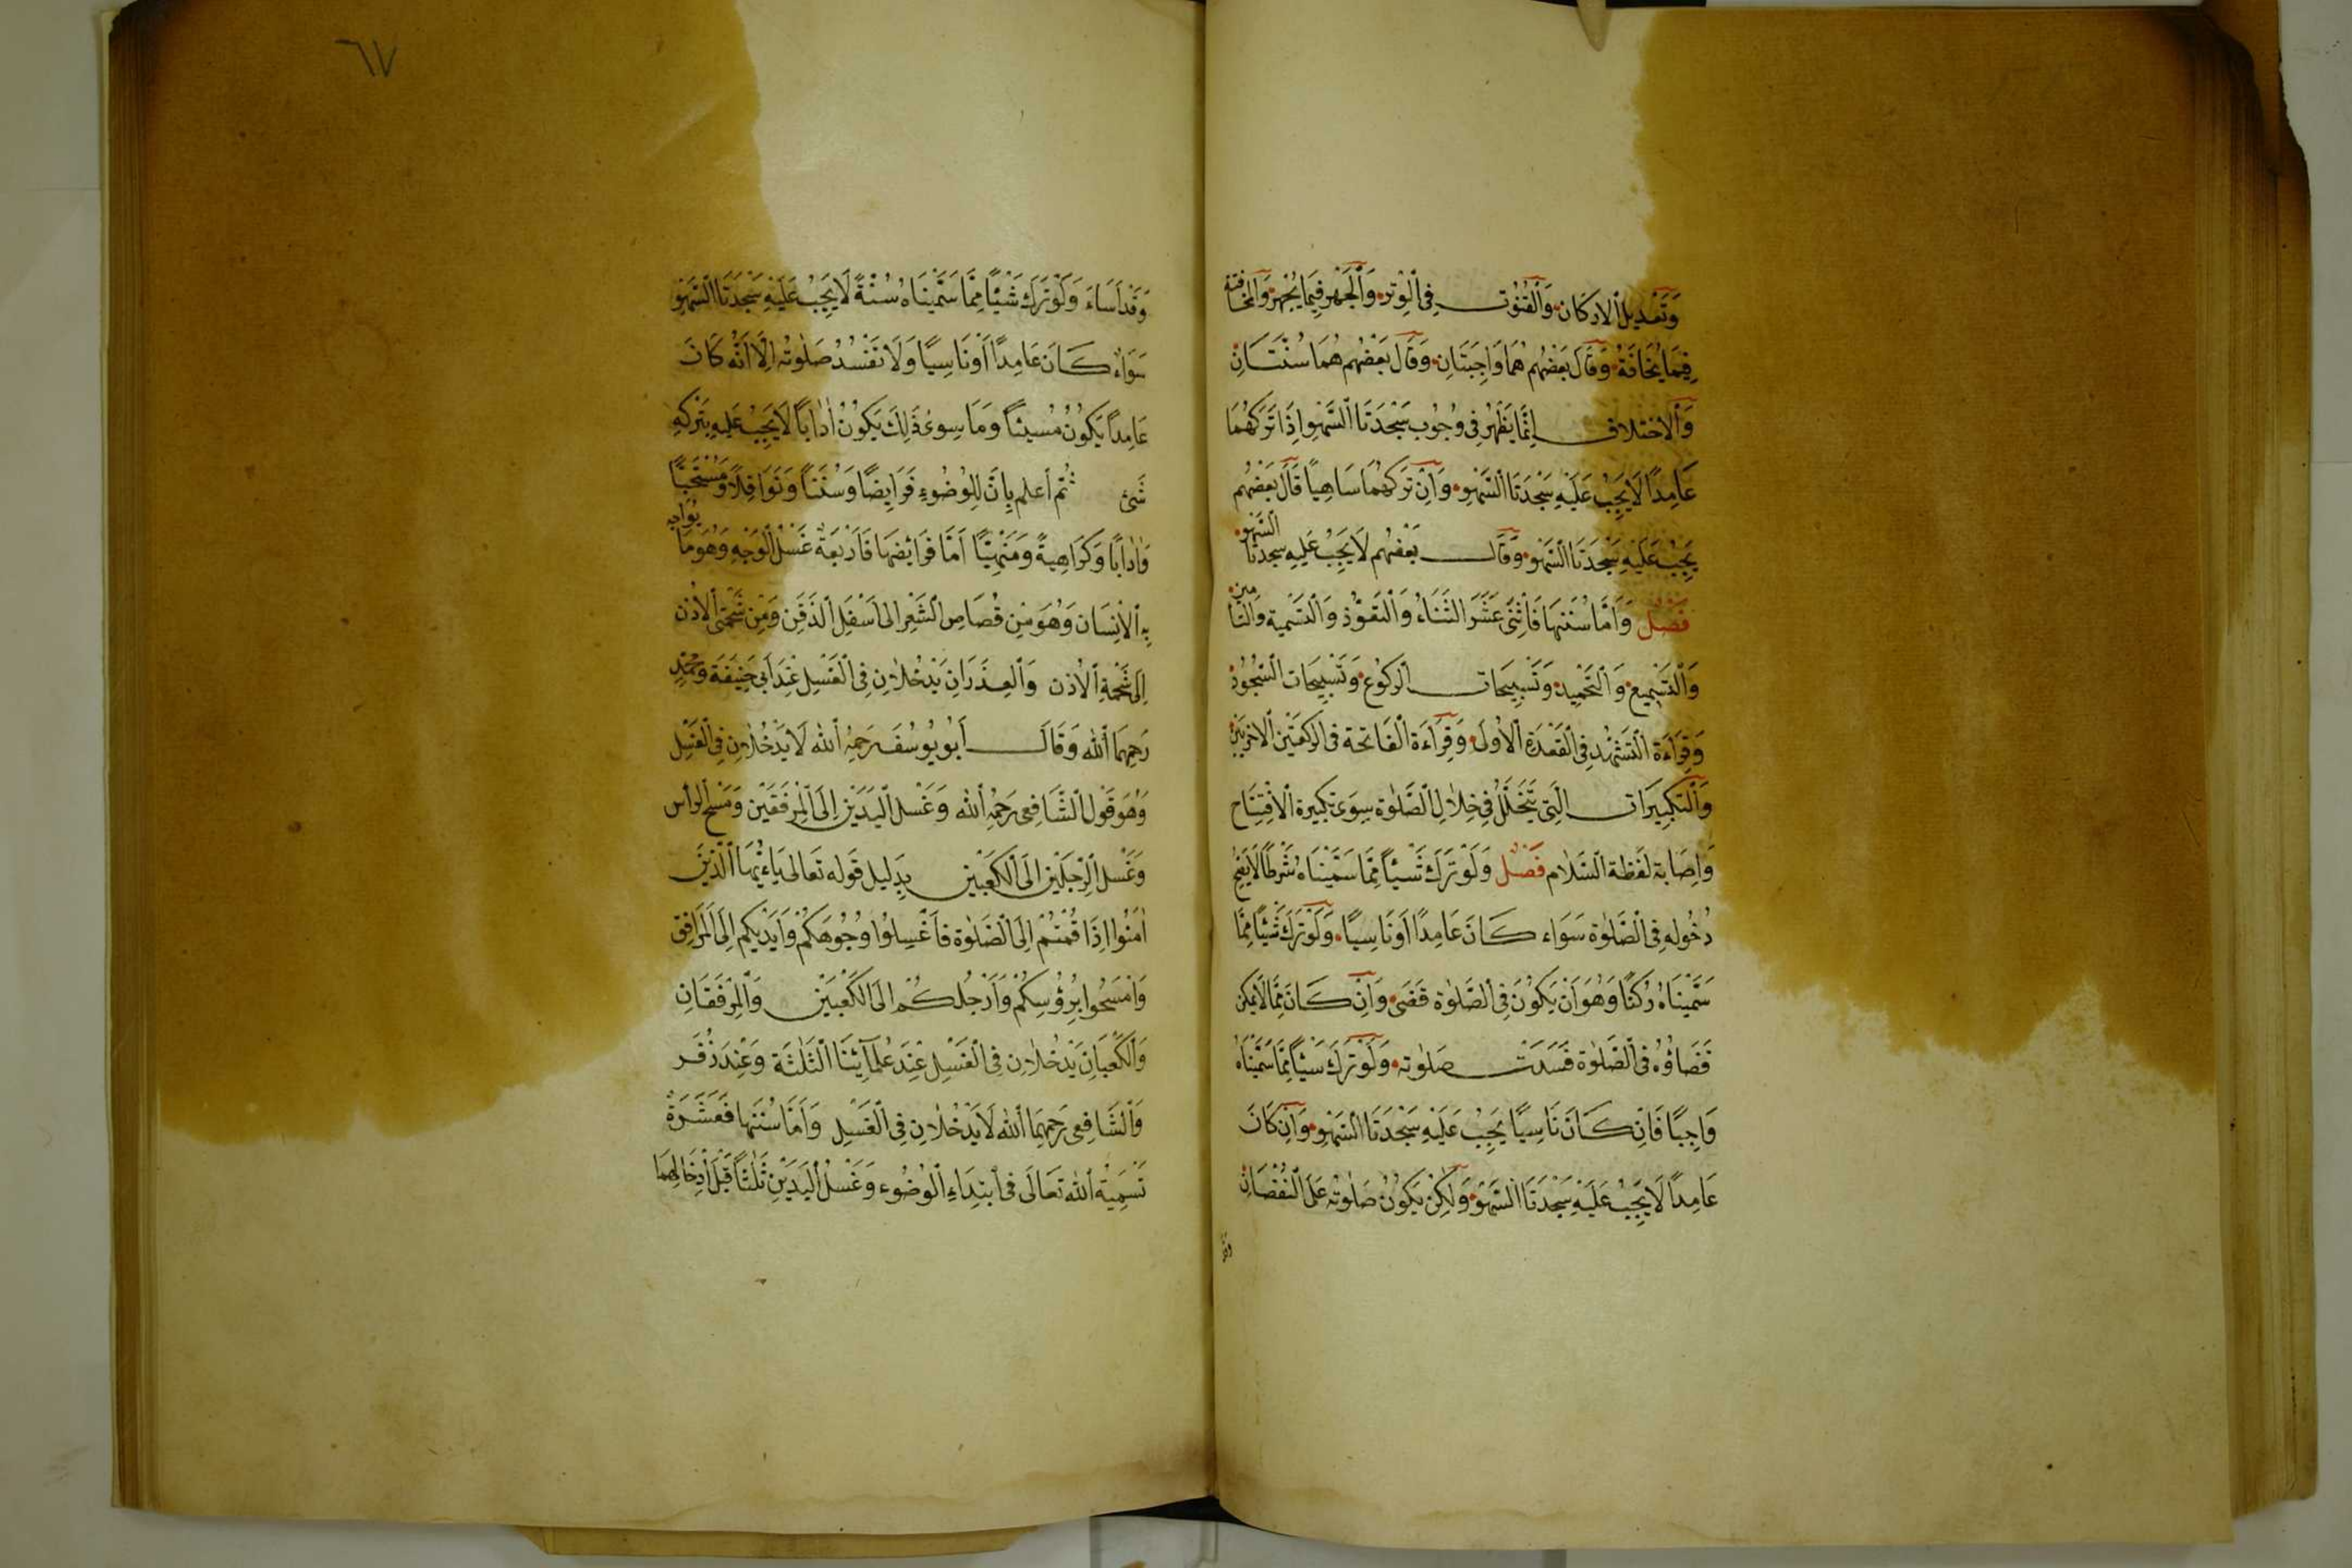 وَتَعْدِيلُ الاَركَان وَالْقُنُوت فِى الْوِتْرِ وَالْجَهْر فِيمَا يُجْهَرُ وَالْمُخَافَتَة
فِيمَا يُخَافَةُ وَقَالَ بَعْضُهُم هُمَا وَاجِبَتَانِ وَقَالَ بَعْضُهُم هُمَا سُنَّتَانِ
وَالاخْتِلَاف اِنَّمَا يَظْهَرُ فِى وُجُوبِ سَجْدَتَا السَّهْوِ اِذَا تَرَكَهُمَا
عَامِدًا لَا يَجِبُ عَلَيْهِ سَجْدَتَا السَّهْوِ وَاَنْ تَرَكَهُمَا سَاهِيًا قَالَ بَعْضُهُم
يَجِبُ عَلَيْهِ سَجْدَتَا السَّهْو وَقَالَ بَعْضُهُم لَا يَجِبُ عَلَيْهِ سجدتا السَّهْو
فَصْلٌ وَاَمَّا سُنَنهَا فَاِثْنَى عَشَرَ الثَّنَاءُ وَالتَّعَوُّذ وَالتَّسْمِية وَالتَّأمين
وَالتَّسْمِيع وَالتَّحْمِيد وَتَسْبِيحَات الركُوع وَتَسْبِيحَات السُّجُود
وَقِرَاءَة التَّشَهُّد فِى الْقَعْدَة الْاُولَى وَقِرَاءَة الْفَاتحَة فى الركعَتَيْن الْاخريَيْن
وَالتَّكْبِيرَات الَّتِى يَتَخَلَّلُ فِى خِلَالِ الصَّلٰوة سِوَى تكبيرة الْافْتِتَاح
وَاِصَابة لَفْظَة السَّلَام فَصْلٌ وَلَوْ تَرَكَ شَيْئًا مِمَّا سَمَّيْنَاهُ شَرْطًا لَا يَصِحّ
دُخُوله فِى الصَّلٰوة سَوَاء كَانَ عَامِدًا اَوْ نَاسِيًا وَلَوْ تَرَكَ شَيْئًا مِمَّا
سَمَّيْنَاهُ رُكْنًا وَهُوَ اَنْ يَكُونَ فِى الصَّلٰوة قَضَى وَاَنْ كَانَ مِمَّا لَا يمكن
قَضَاؤُهُ فى الصَّلٰوة فَسَدَتْ صَلٰوته وَلَوْ تَرَكَ شَيْئًا مِمَّا سَمَّيْنَاهُ
وَاجِبًا فَاِنْ كَانَ نَاسِيًا يَجِبُ عَلَيْهِ سَجْدَتَا السَّهْوِ وَاِنْ كَانَ
عَامِدًا لَا يَجِبُ عَلَيْهِ سَجْدَتَا السَّهْو وَلٰكِنْ يَكُونُ صَلٰوته عَلَى النُّقْصَانِ
وَقَدْ
٦٧
وَقَدْ اَسَاءَ وَلَوْ تَرَكَ شَيْئًا مِمَّا سَمَّيْنَاهُ سُنَّةً لَا يَجِبُ عَلَيْهِ سَجْدَتَا السَّهْوِ
سَوَاء كَانَ عَامِدًا اَوْ نَاسِيًا وَلَا تَفْسُدُ صَلٰوتُه اِلَّا اَنَّهُ كَانَ
عَامِدًا يَكُونُ مُسِيئًا وَمَا سِوىٰ ذَلِكَ يَكُونُ اٰدَابًا لَا يَجِبُ عَلَيهِ بِتَرْكِهِ
شَىْء ثُمّ أعلم بِاَنَّ لِلْوُضُوءِ فَرَايِضًا وَسُنَنًا وَنَوَافِلًا وَمُسْتَحَبًّا
وَاٰدَابًا وَكَرَاهِيةً وَمَنْهِيًّا اَمَّا فَرَائضهَا فَاَرْبَعَةٌ غَسْلُ الْوَجْهِ وَهُوَ مَا يُوَاجِه
بِهِ الْاِنْسَان وَهُوَ مِنْ قُصَاصِ الشَّعْرِ الى اَسْفَلِ الذَقَن وَمِنْ شَحْمَتَى الْاُذْن
اِلَى شَحْمَةِ الْاُذن وَالْعِذَرَانِ يَدْخُلَانِ فِى الْغَسْلِ عِنْدَ اَبى حَنِيفَة وَمُحَمَّدٍ
رَحِمَهُمَا اللّٰه وَقَالَ اَبُو يُوسُف رَحِمَهُ اللّٰه لَا يَدْخُلَانِ فِى الْغَسْلِ
وَهُوَ قَوْل الشَّافِعى رَحِمَهُ اللّٰه وَغَسْل الْيَدَيْن اِلَى الْمِرْفَقَيْن وَمَسْح الرأس
وَغَسْل الرِّجْلَيْن الىَ الْكَعْبَيْن بِدَلِيل قَوْله تَعَالى يَاءَيُّهَا الَّذِينَ
اٰمَنُوا اِذَا قُمْتُمْ اِلَى الصَّلٰوة فَاغْسِلُوا وُجُوهَكُمْ وَاَيْدِيَكُم اِلَى الْمَرَافِق
وَامْسَحُوا بِرُؤُسِكُمْ وَاَرْجُلَكُمْ الىَ الكَعْبَيْن وَالْمِرْفَقَانِ
وَالْكَعْبَانِ يَدْخُلَان فِى الْغَسْلِ عِنْدَ عُلَمَآئِنَا الثَّلٰثَة وَعِنْدَ زُفَر
وَالشَّافِعى رَحِمَهُمَا اللّٰه لَا يَدْخُلَانِ فِى الْغَسْلِ وَاَمَّا سُنَنهَا فَعَشَرَةٌ
تَسْمِيَة اللّٰه تَعَالَى فى ابتِدَاءِ الْوُضُوء وَغَسْلُ الْيَدَيْنِ ثَلٰثًا قَبْلَ اِدْخَالِهِمَا